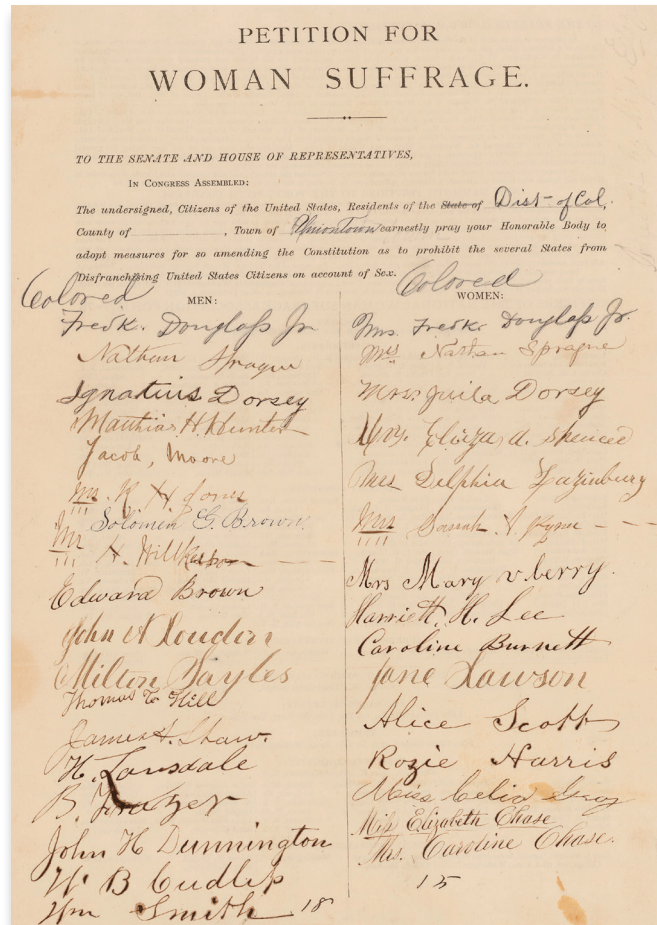 PETITION FOR
WOMAN SUFFRAGE.
TO THE SENATE AND HOUSE OF REPRESENTATIVES,
IN CONGRESS ASSEMBLED:
The undersigned, Citizens of the United States, Residents of the State of Dist- of Col.
County of , Town of Uniontown earnestly pray your Honorable Body to
adopt measures for so amending the Constitution as to prohibit the several States from
Disfranchising United States Citizens on account of Sex.
Colored
MEN:
Fredk. Douglass Jr
Nathan Sprague
Ignatius Dorsey
Matthias H. Hunter
Jacob, Moore
Mr. R H Jones
Solomin G. Brown
Mr H. Willkerson
Edward Brown
John A Loudon
Milton Sayles
Thomas C. Hill
James H. Shaw.
H. Lansdale
B. Frazer
John H Dunnington
W B Cudlip
Wm Smith 18
Colored
WOMEN:
Mrs. Fredk. Douglass Jr.
Mrs Nathan Sprague
Mrs. Juila Dorsey
Mrs. Elizza A. Spencer
Mrs Delphia Lazinbury
Mrs Sarah J.
Mrs Mary v berry.
Harriett H. Lee
Caroline Burnett
Jane Lawson
Alice Scott
Rozie Harris
Miss Celia Gray
Miss Elizabeth Chase
Mrs. Caroline Chase.
15